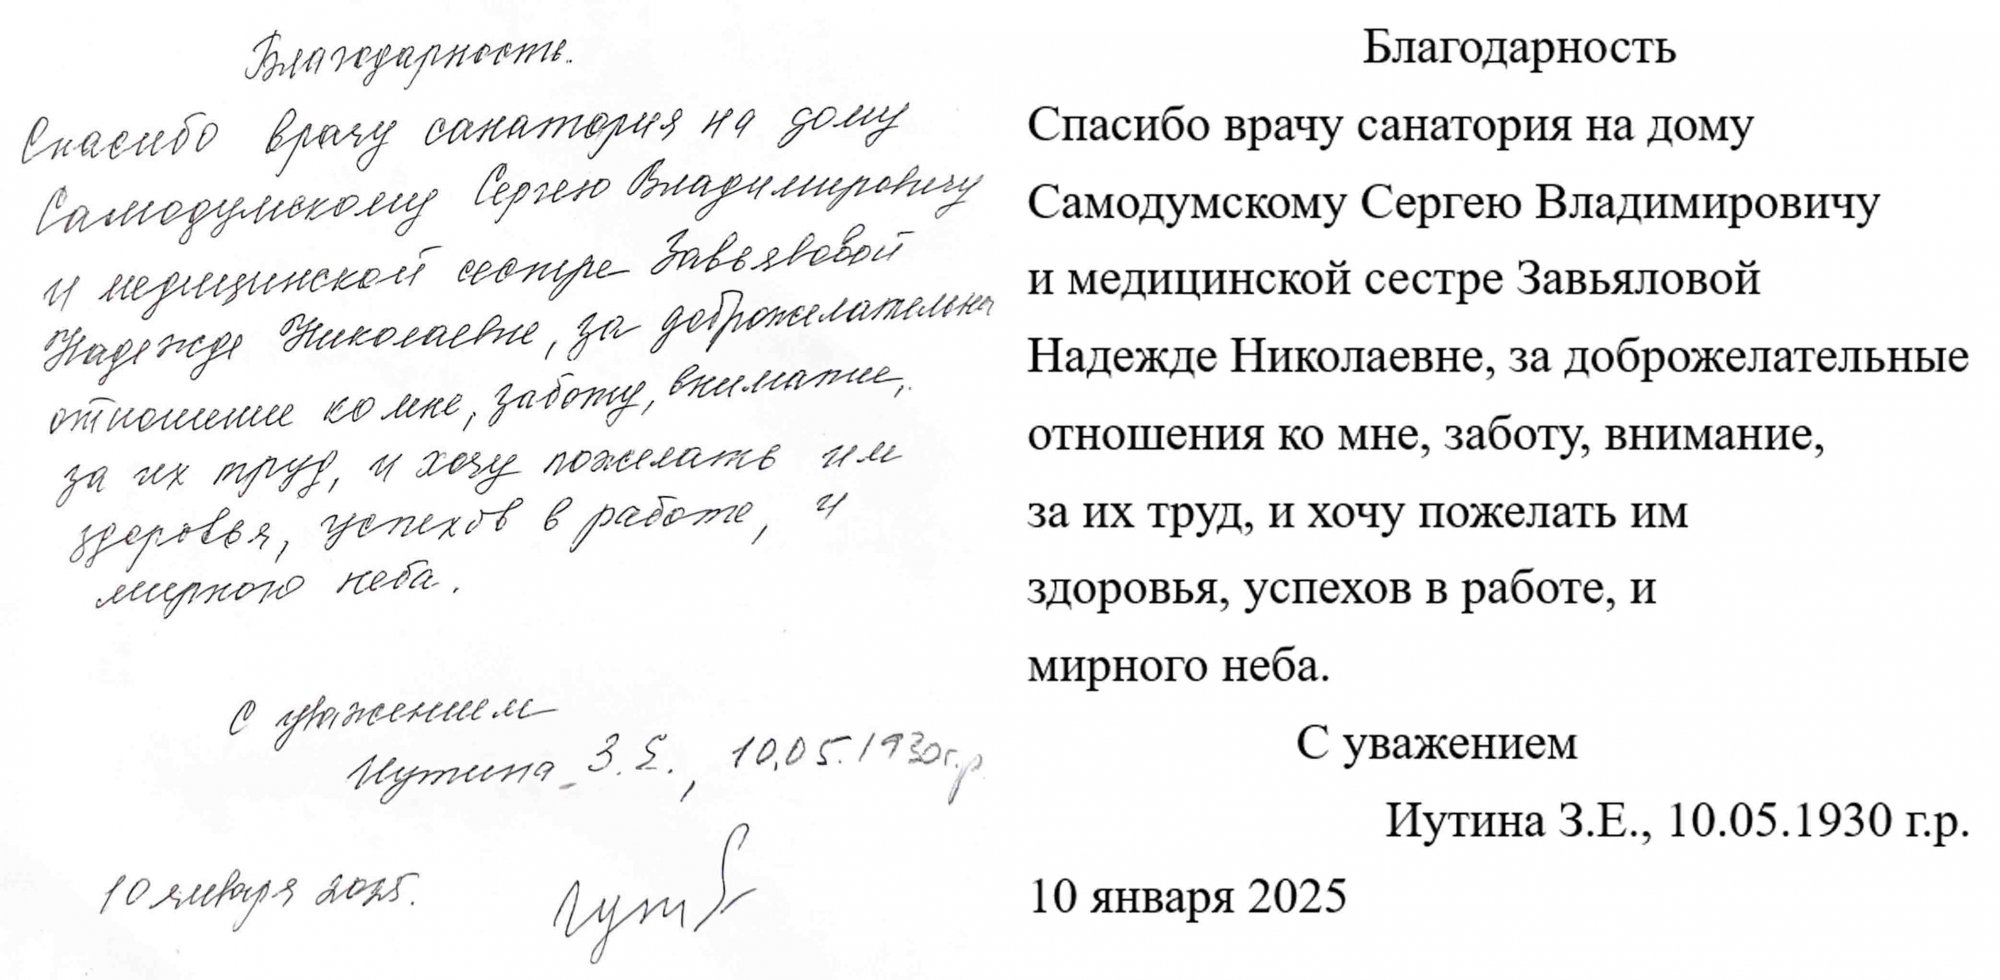 Благодарность.
Спасибо врачу санатория на дому
Самодумскому Сергею Владимировичу
и медицинской сестре Завьяловой
Надежде Николаевне, за доброжелательны
отношение ко мне, заботу, внимание,
за их труд, и хочу пожелать им
здоровья, успехов в работе, и
мирного неба.
С уважением
Иутина З.Е., 10.05.1930г.р.
10 января 2025.
Благодарность
Спасибо врачу санатория на дому
Самодумскому Сергею Владимировичу
и медицинской сестре Завьяловой
Надежде Николаевне, за доброжелательные
отношения ко мне, заботу, внимание,
за их труд, и хочу пожелать им
здоровья, успехов в работе, и
мирного неба.
С уважением
Иутина З.Е., 10.05.1930 г.р.
10 января 2025